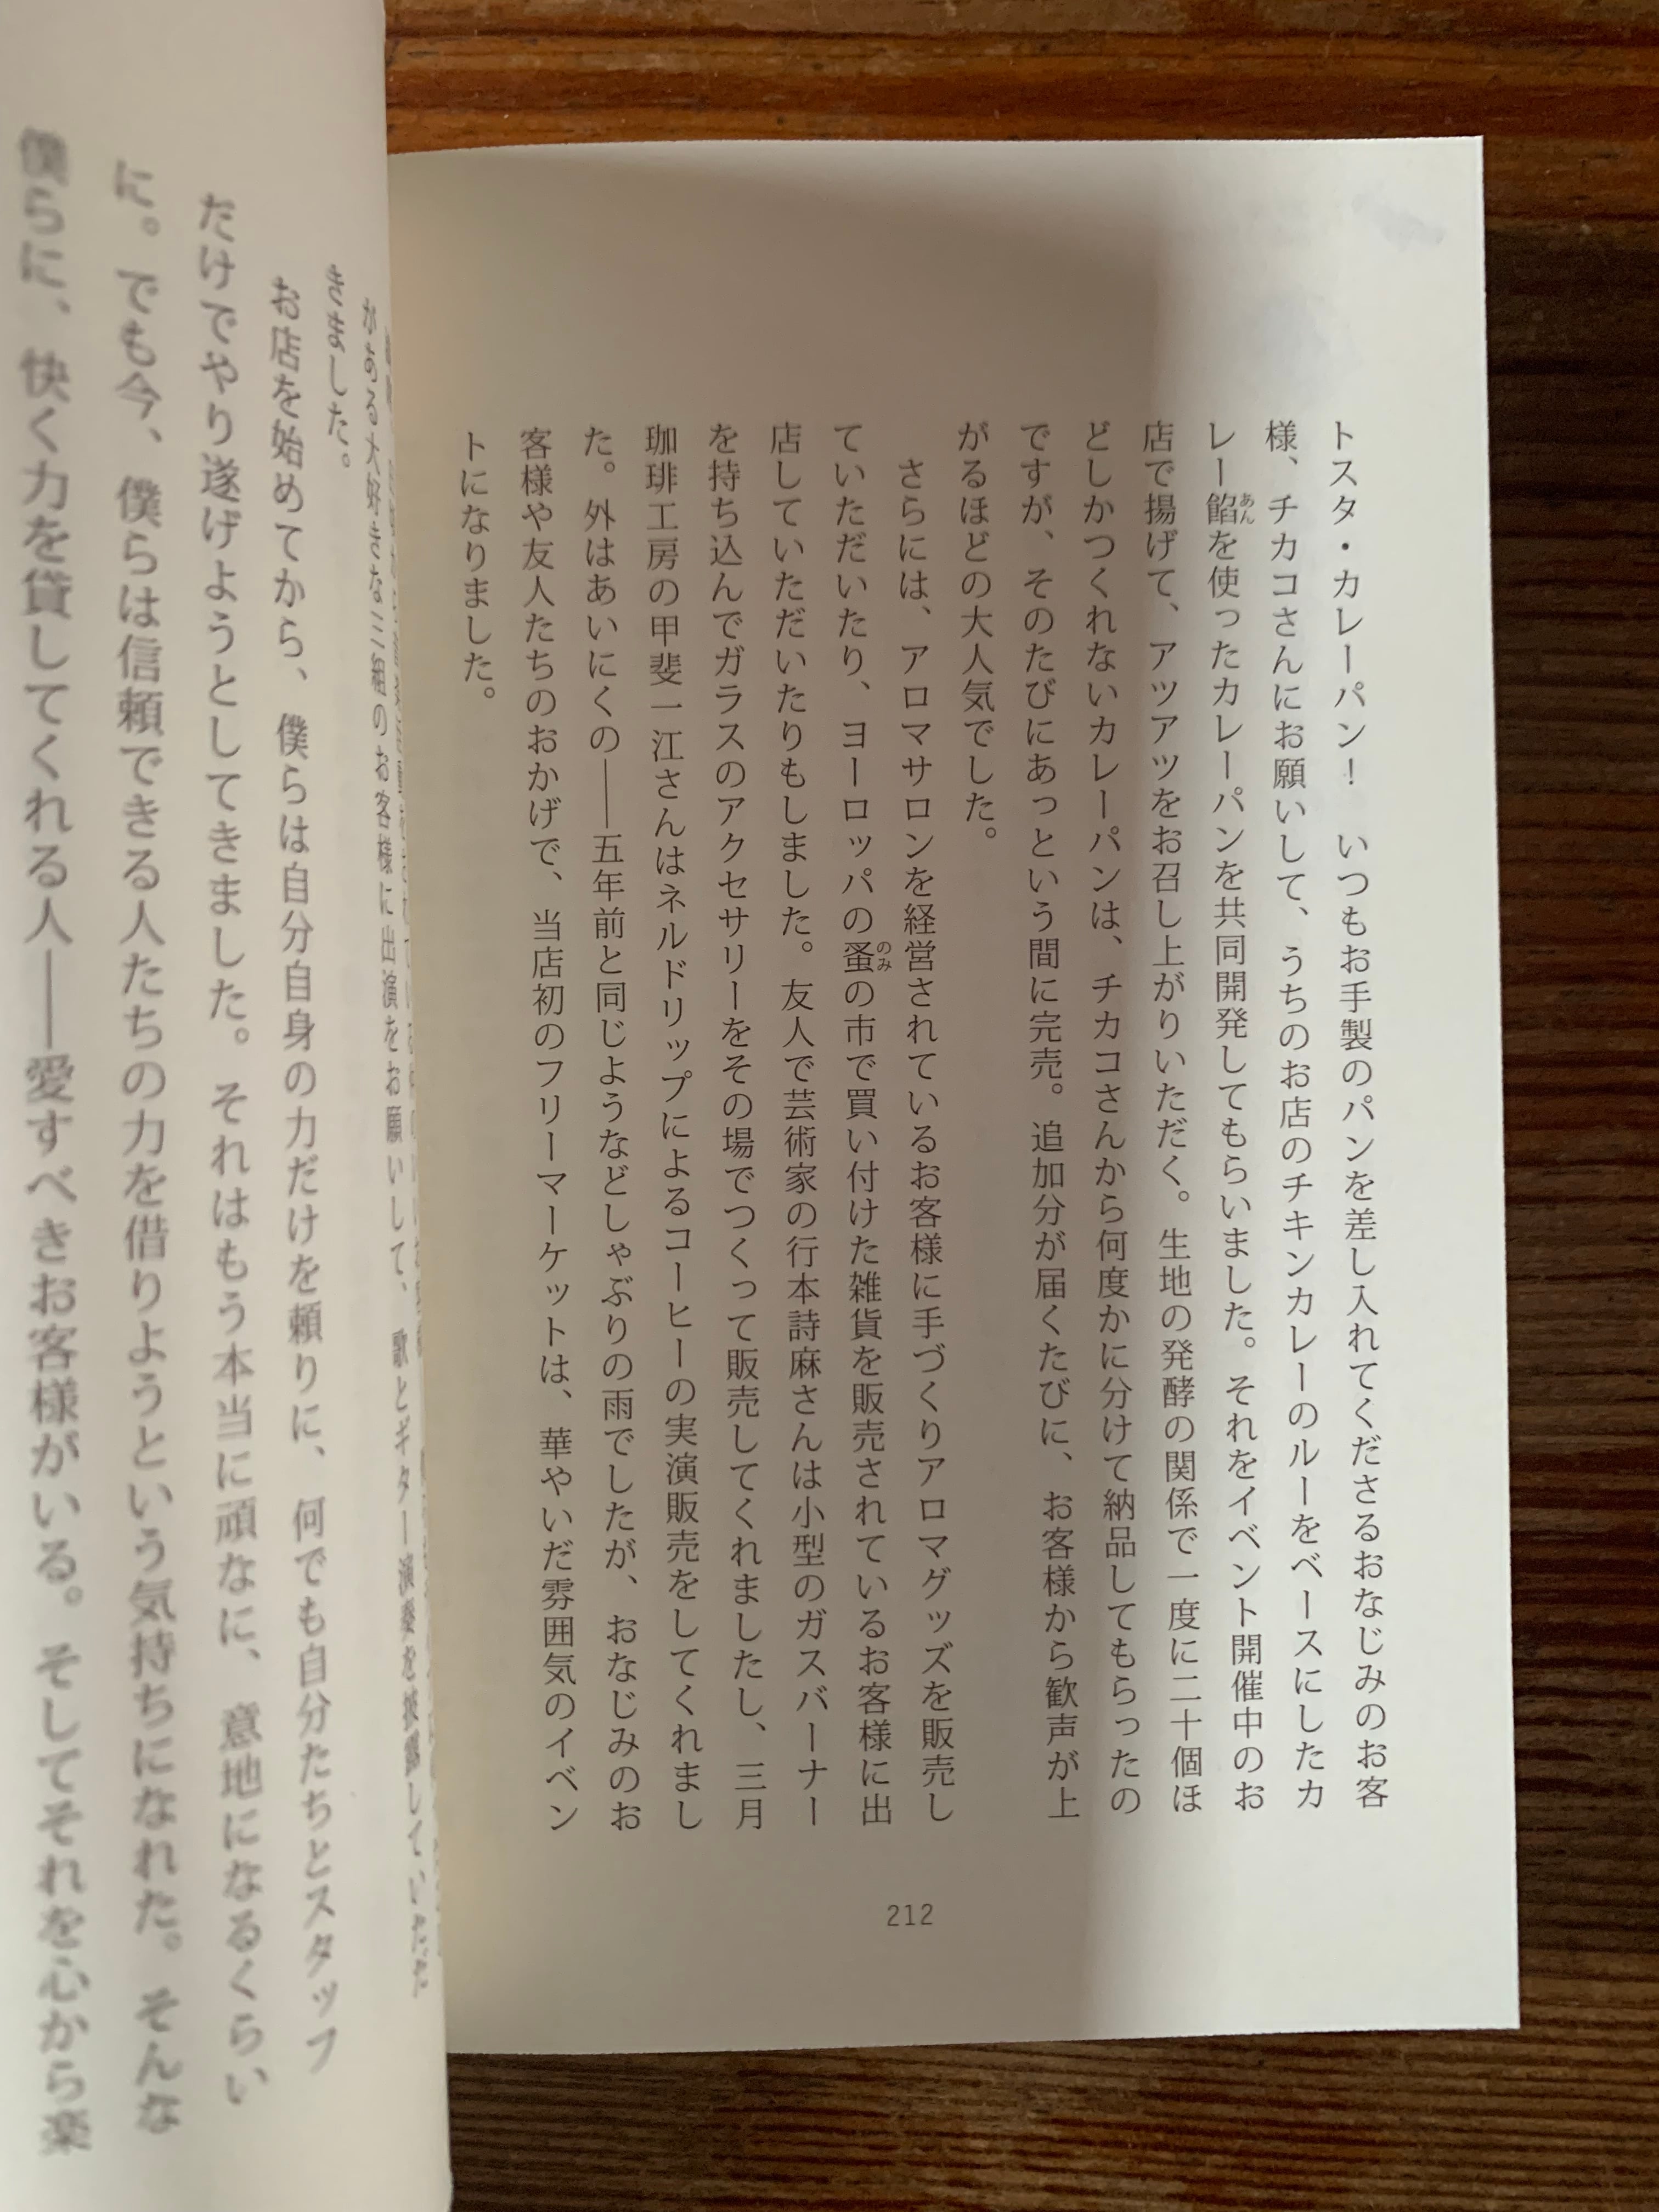 トスタ・カレーパン！　いつもお手製のパンを差し入れてくださるおなじみのお客
様、チカコさんにお願いして、うちのお店のチキンカレーのルーをベースにしたカ
レー餡を使ったカレーパンを共同開発してもらいました。それをイベント開催中のお
あん
店で揚げて、アツアツをお召し上がりいただく。生地の発酵の関係で一度に二十個ほ
どしかつくれないカレーパンは、チカコさんから何度かに分けて納品してもらったの
ですが、そのたびにあっという間に完売。追加分が届くたびに、お客様から歓声が上
がるほどの大人気でした。
さらには、アロマサロンを経営されているお客様に手づくりアロマグッズを販売し
ていただいたり、ヨーロッパの蚤の市で買い付けた雑貨を販売されているお客様に出
のみ
店していただいたりもしました。友人で芸術家の行本詩麻さんは小型のガスバーナー
を持ち込んでガラスのアクセサリーをその場でつくって販売してくれましたし、三月
珈琲工房の甲斐一江さんはネルドリップによるコーヒーの実演販売をしてくれまし
た。外はあいにくの――五年前と同じようなどしゃぶりの雨でしたが、おなじみのお
客様や友人たちのおかげで、当店初のフリーマーケットは、華やいだ雰囲気のイベン
トになりました。
212
がある大好きな三組のお客様に出演をお願いして、歌とギター演奏を披露していただ
きました。
お店を始めてから、僕らは自分自身の力だけを頼りに、何でも自分たちとスタッフ
だけでやり遂げようとしてきました。それはもう本当に頑なに、意地になるくらい
に。でも今、僕らは信頼できる人たちの力を借りようという気持ちになれた。そんな
僕らに、快く力を貸してくれる人――愛すべきお客様がいる。そしてそれを心から楽